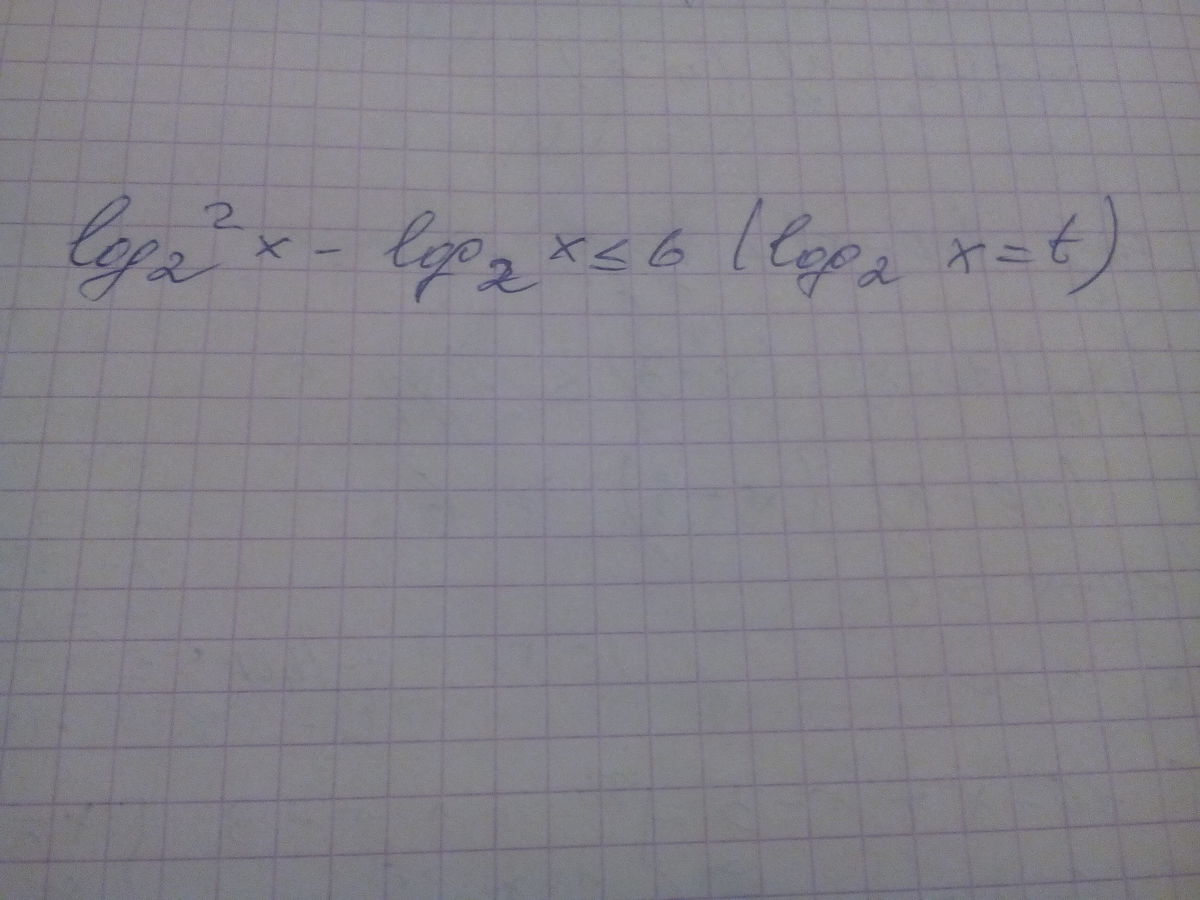 log₂² x - log₂ x ≤ 6 (log₂ x = t)